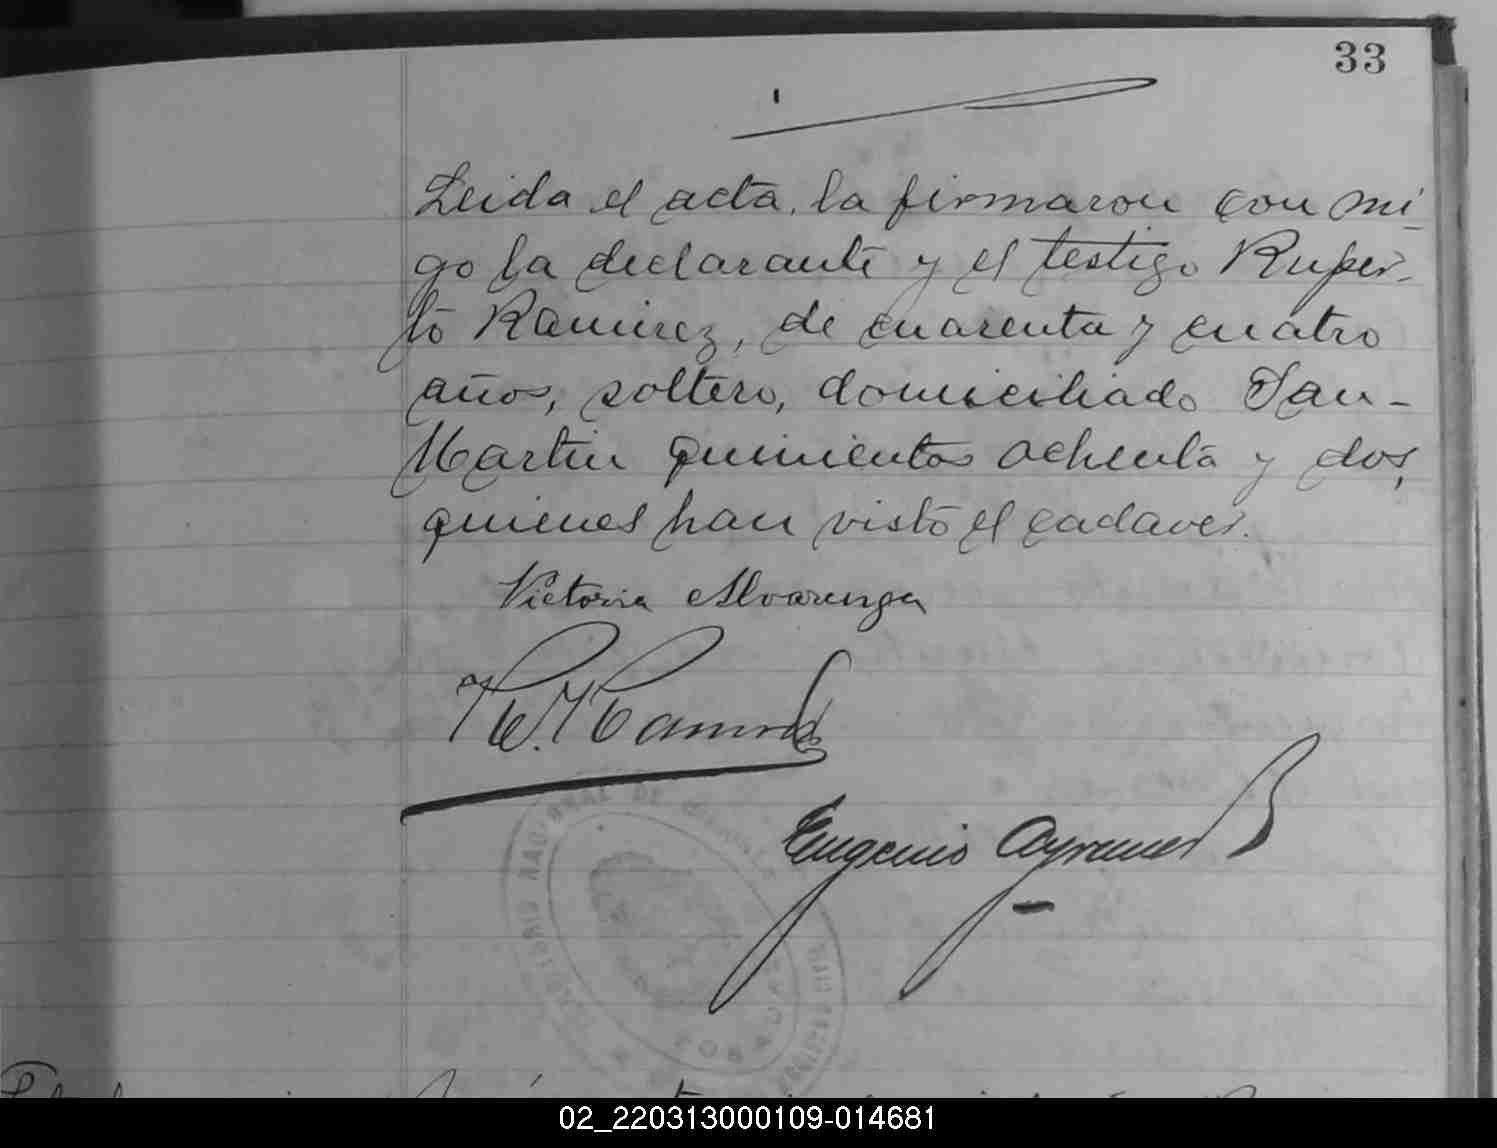 33
Leida el acta, la firmaron con mi
go la declarante y el testigo Ruper-
to Ramirez, de cuarenta y cuatro
años, soltero, domiciliado San-
Martin quinientos ochenta y dos,
quienes han visto el cadaver.
Victoria Alvarenga
Eugenio
02_220313000109-014681